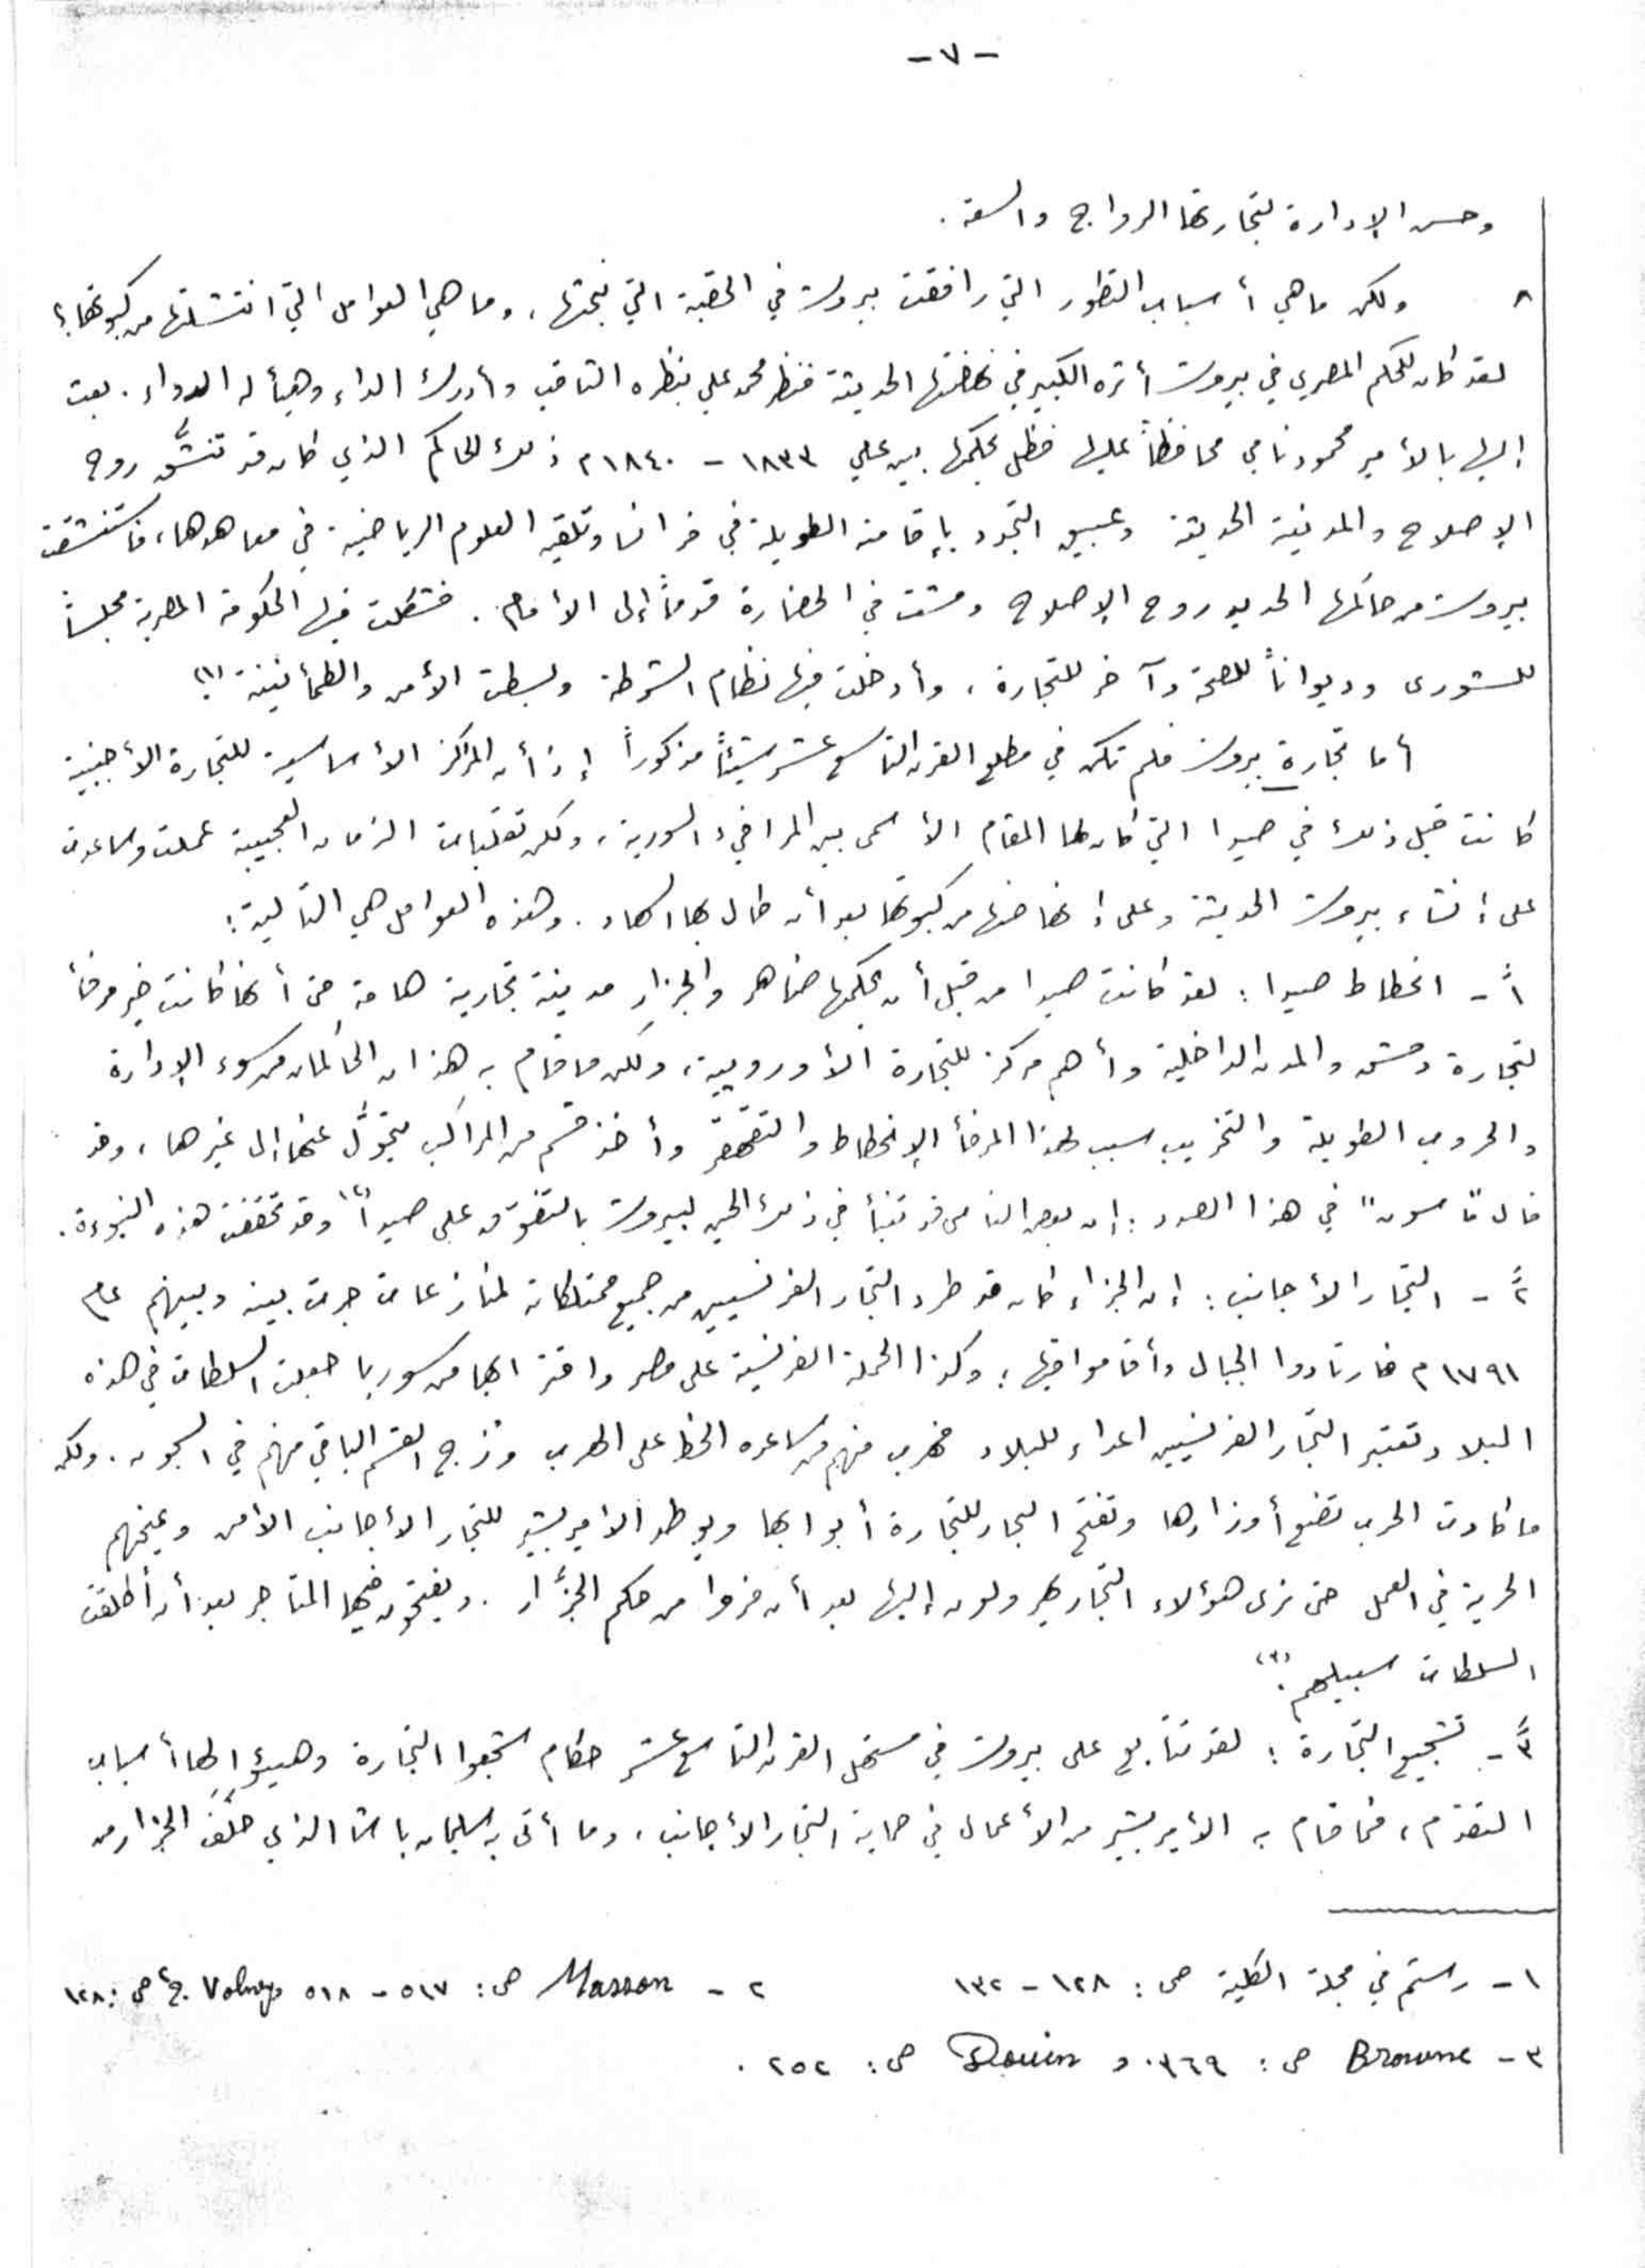 - ٧ -
وحسن الإدارة لتجارتها الرواج والسعة .
ولكن ما هي أسباب التطور التي رافقت بيروت في الحقبة التي نبحثها ، وما هي العوامل التي انتشلتها من كبوتها ؟
لقد كان للحكم المصري في بيروت أثره الكبير في نهضتها الحديثة فنظر محمد علي بنظره الثاقب وأدرك الداء وهيأ له الدواء . بعث
إليها بالأمير محمود نامي محافظاً عليها فظل يحكمها بين عامي ١٨٣٣ - ١٨٤٠ م ذلك الحاكم الذي كان قد تنشَّق روح
الإصلاح والمدنية الحديثة وعبير التجدد بإقامته الطويلة في فرانسا وتلقيه العلوم الرياضية في معاهدها ، فاستنشقت
بيروت من حاكمها الجديد روح الإصلاح ومشت في الحضارة قدماً إلى الأمام . فشكلت فيها الحكومة المصرية مجلساً
للشورى وديواناً للصحة وآخر للتجارة ، وأدخلت فيها نظام الشرطة وبسطت الأمن والطمأنينة (١) .
أما تجارة بيروت فلم تكن في مطلع القرن التاسع عشر شيئاً مذكوراً إذ أن المراكز الأساسية للتجارة الأجنبية
كانت قبل ذلك في صيدا التي كان لها المقام الأسمى بين المرافىء السورية ، ولكن تقلبات الزمان العجيبة عملت وساعدت
على إنشاء بيروت الحديثة وعلى إنهاضها من كبوتها بعد أن طال بها السهاد . وهذه العوامل هي التالية :
١ً - انحطاط صيدا : لقد كانت صيدا من قبل أن يحكمها ضاهر والجزار مدينة تجارية هامة حتى أنها كانت خير مرفأ
لتجارة دمشق والمدن الداخلية وأهم مركز للتجارة الأوروبية ، ولكن ما قام به هذان الحاكمان من سوء الإدارة
والحروب الطويلة والتخريب سبب لهذا المرفأ الإنحطاط والتقهقر وأخذ قسم من المراكب يتحوَّل عنها إلى غيرها ، وقد
قال " ماسون " في هذا الصدد : إن بعض الناس قد تنبأ في ذلك الحين لبيروت بالتفوق على صيدا (٢) وقد تحققت هذه النبوءة .
٢ً - التجار الأجانب : إن الجزار كان قد طرد التجار الفرنسيين من جميع ممتلكاته لمنازعات جرت بينه وبينهم عام
١٧٩١ م فارتادوا الجبال وأقاموا فيها ؛ وكذا الحملة الفرنسية على مصر واقترابها من سوريا جعلت السلطات في هذه
البلاد تعتبر التجار الفرنسيين اعداء للبلاد فهرب منهم من ساعده الحظ على الهرب وزج القسم الباقي منهم في السجون . ولكن
ما كادت الحرب تضع أوزارها وتفتح البحار للتجارة أبوابها ويوطد الامير بشير للتجار الأجانب الأمن ويمنحهم
الحرية في العمل حتى نرى هؤلاء التجار يهرولون إليها بعد أن فروا من حكم الجزَّار . ويفتحون فيها المتاجر بعد أن أطلقت
السلطات سبيلهم (٣) .
٣ً - تشجيع التجارة : لقد تتابع على بيروت في مستهل القرن التاسع عشر حكام شجعوا التجارة وهيئوا لها أسباب
التقدّم ، فما قام به الأمير بشير من الأعمال في حماية التجار الأجانب ، وما أتى به سليمان باشا الذي خلَفَ الجزار من
١ - رستم في مجلة الكلية ص : ١٢٨ - ١٣٢
٢ - Masson ص : ٥١٧ - ٥١٨ و Volney ج ٢ ص : ١٢٨
٣ - Browne ص : ٣٦٩ . و Douin ص : ٢٥٢ .